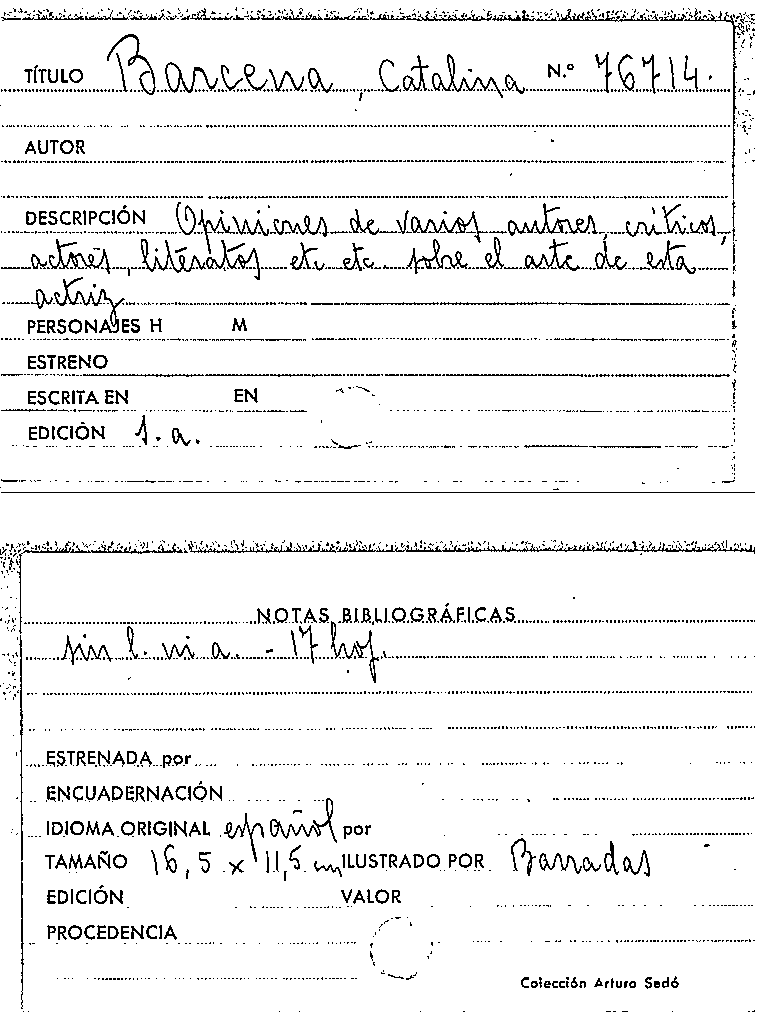 TÍTULO Barcena, Catalina N.º 76714.
AUTOR
DESCRIPCIÓN Opiniones de varios autores, críticos,
actores, literatos etc etc. sobre el arte de esta
actriz
PERSONAJES H M
ESTRENO
ESCRITA EN EN
EDICIÓN s. a.
NOTAS BIBLIOGRÁFICAS
sin l. ni a. - 17 hoj.
ESTRENADA por
ENCUADERNACIÓN
IDIOMA ORIGINAL español por
TAMAÑO 16,5 x 11,5 cm ILUSTRADO POR Barradas
EDICIÓN VALOR
PROCEDENCIA
Colección Arturo Sedó